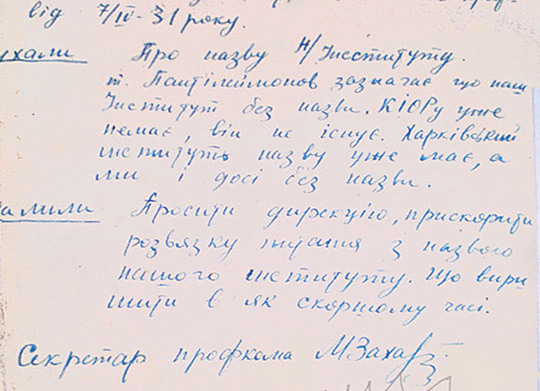 від 7/IV-31 року.
ухали Про назву Н/Інституту.
т. Пантілеймонов зазначає що наш
Інститут без назви. КІОРу уже
немає, він не існує. Харківський
інститутъ назву уже має, а
ми і досі без назви.
а мили Просити дирекцію, прискорити
розвязку питання з назвою
нашого інституту. Що вири
шити в як скоршому часі.
Секретар профкома МЗахар